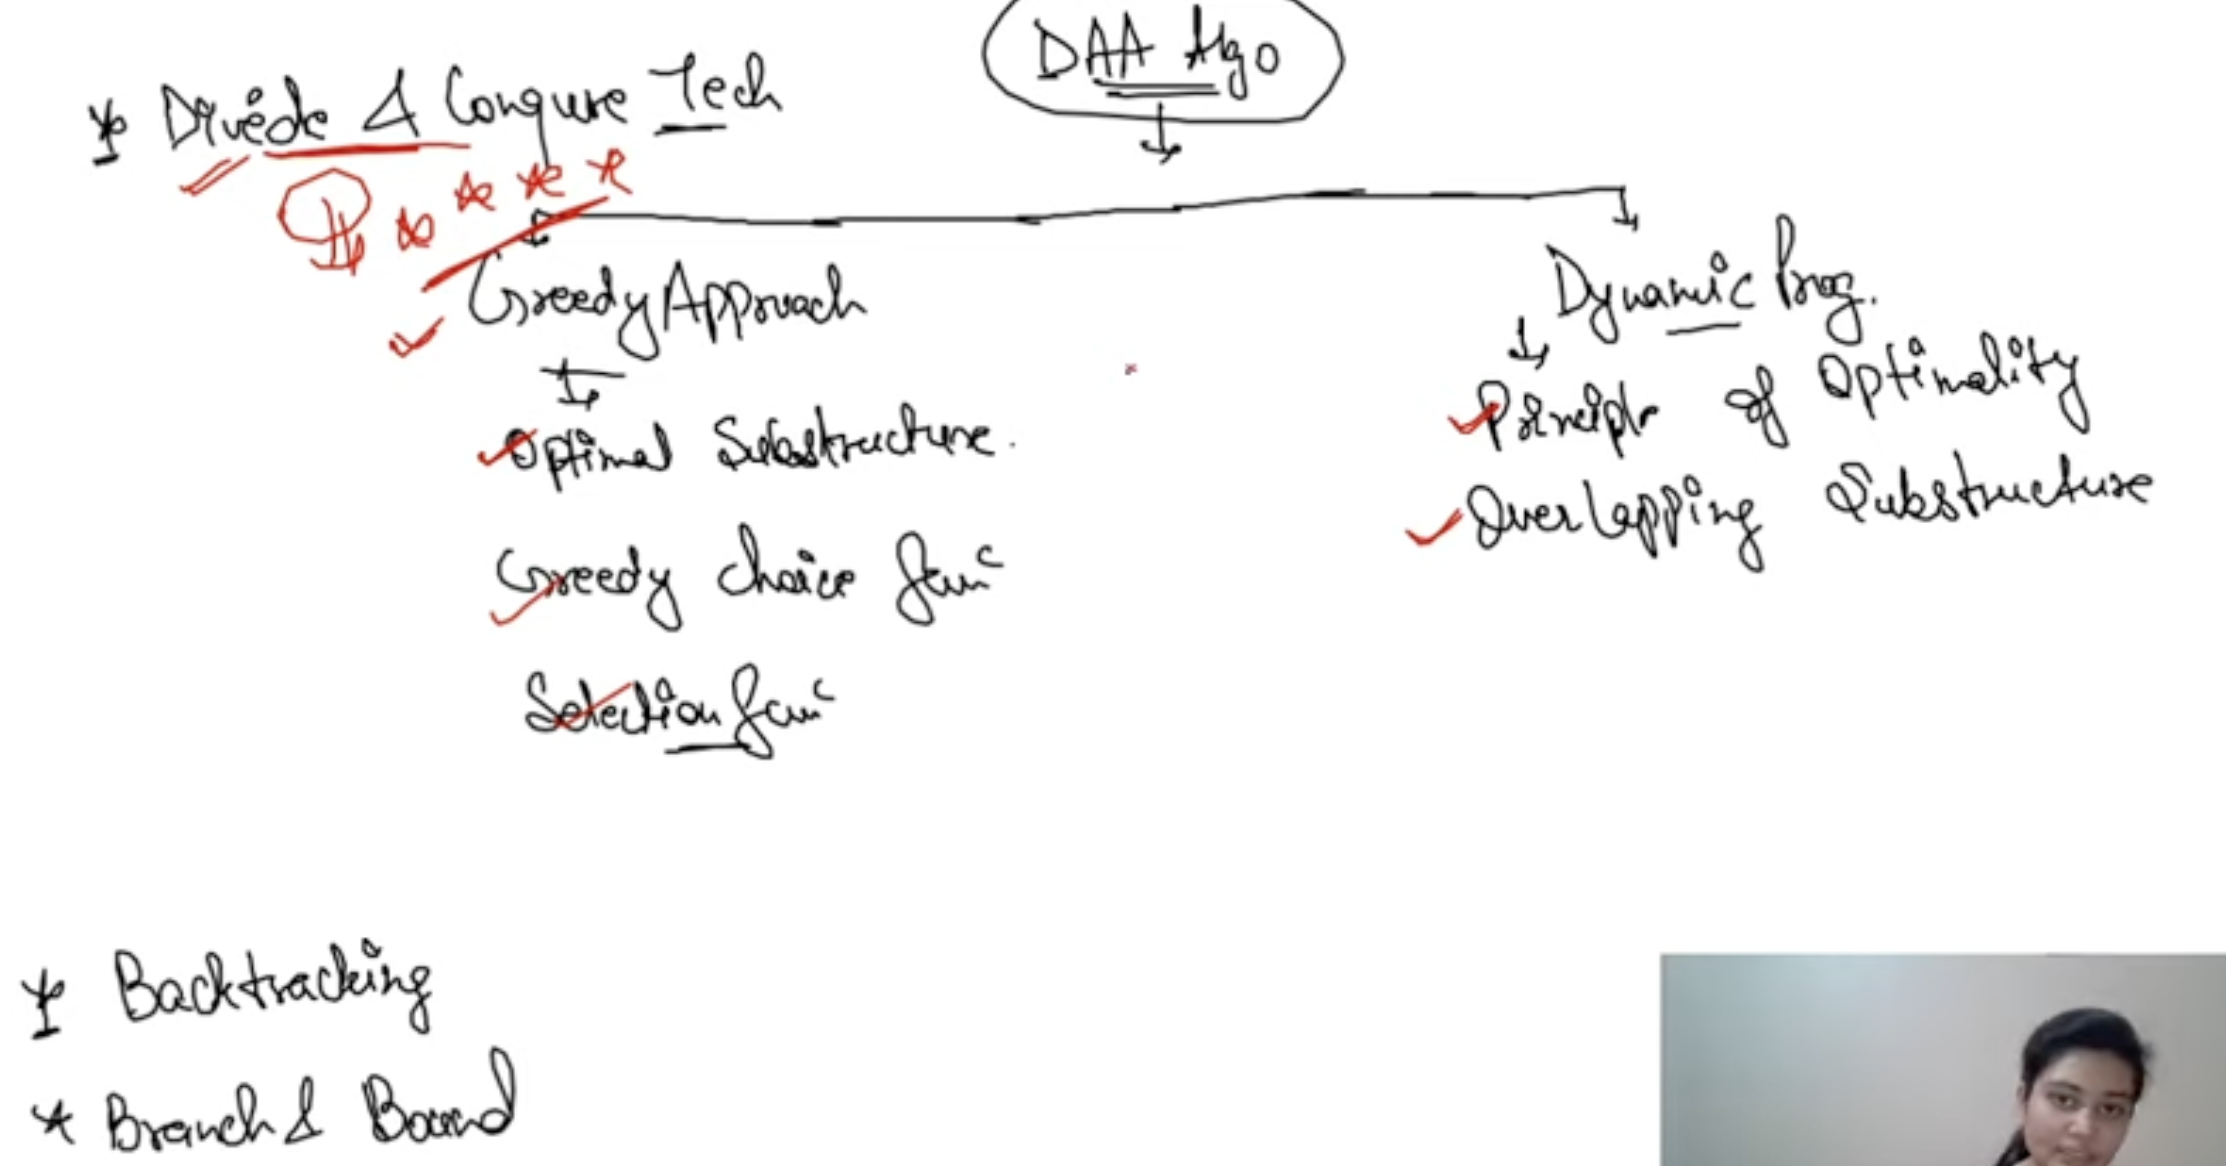 DAA Algo
* Divide & Conqure Tech
Greedy Approach
Optimal Substructure.
Greedy choice func
Selection func
Dynamic Prog.
Principle of Optimality
Overlapping Substructure
* Backtracking
* Branch & Bound